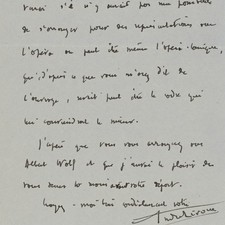 voir s'il n'y aurait pas une possibilité
de s'arranger pour des représentations sur
l'opéra ou peut être même l'opéra-comique,
qui, d'après ce que vous m'avez dit de
l'ouvrage, serait peut être le cadre qui
lui conviendrait le mieux.
J'espère que vous vous arrangerez
Albert Wolf et que j'aurai le plaisir de
vous avant votre départ.
Croyez-moi bien cordialement votre